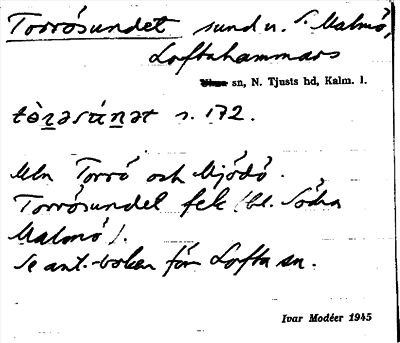 Torrösundet sund n. S. Malmö,
Loftahammars
sn, N. Tjusts hd, Kalm. l.
tòr̲əsún̲ət s. 172.
Mln Torrö och Mjödö.
Torrösundet fek (bl. Södra
Malmö).
Se ant.-boken för Lofta sn.
Ivar Modéer 1945